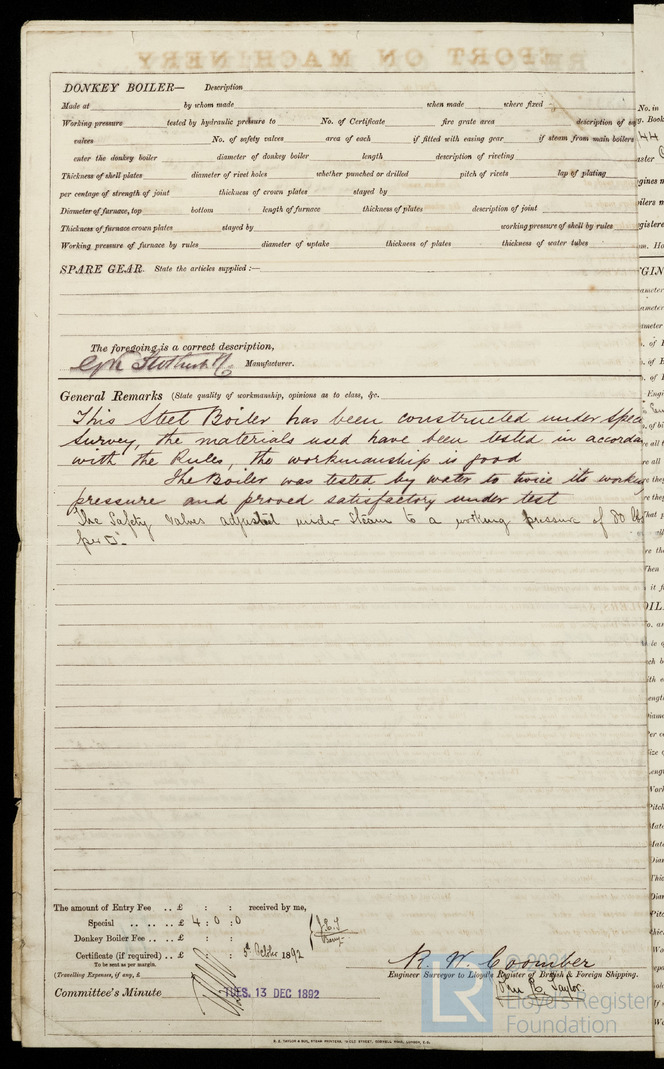 REPORT ON MACHINERY
DONKEY BOILER— Description
Made at by whom made when made where fixed
Working pressure tested by hydraulic pressure to No. of Certificate fire grate area description of
valves No. of safety valves area of each if fitted with easing gear if steam from main boilers
enter the donkey boiler diameter of donkey boiler length description of riveting
Thickness of shell plates diameter of rivet holes whether punched or drilled pitch of rivets lap of plating
per centage of strength of joint thickness of crown plates stayed by
Diameter of furnace, top bottom length of furnace thickness of plates description of joint
Thickness of furnace crown plates stayed by working pressure of shell by rules
Working pressure of furnace by rules diameter of uptake thickness of plates thickness of water tubes
SPARE GEAR. State the articles supplied :—
The foregoing is a correct description,
Manufacturer.
General Remarks (State quality of workmanship, opinions as to class, &c.
This Steel Boiler has been constructed under Spec
Survey, the materials used have been tested in accorda
with the Rules, the workmanship is good
The Boiler was tested by water to twice its workin
pressure and proved satisfactory under test
The Safety Valves adjusted under Steam to a working pressure of 80 lbs
per □".
The amount of Entry Fee .. £ : : received by me,
Special .. .. £ 4 : 0 : 0
Donkey Boiler Fee .. .. £ : :
Certificate (if required) .. £ : : 5th October 1892
To be sent as per margin.
(Travelling Expenses, if any, £
R. W. Coomber
Engineer Surveyor to Lloyd's Register of British & Foreign Shipping.
Wm R. Taylor
Committee's Minute
TUES. 13 DEC 1892
LR
Lloyd's Register
Foundation